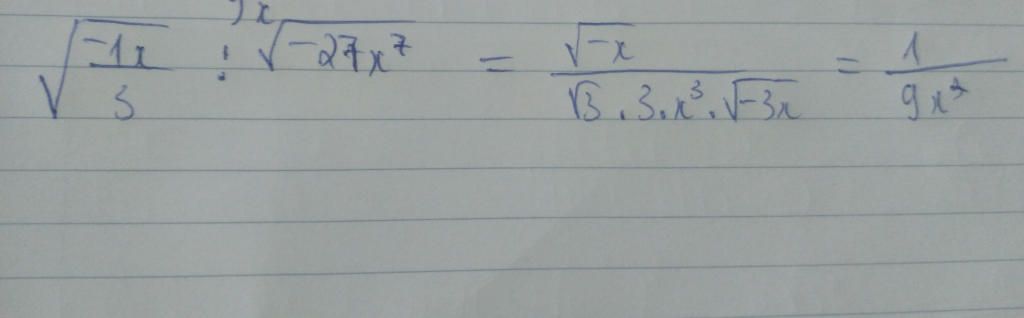 x
√(-1x/3) : √(-27x⁷) = √-x / (√3 . 3 . x³ . √-3x) = 1 / 9x³